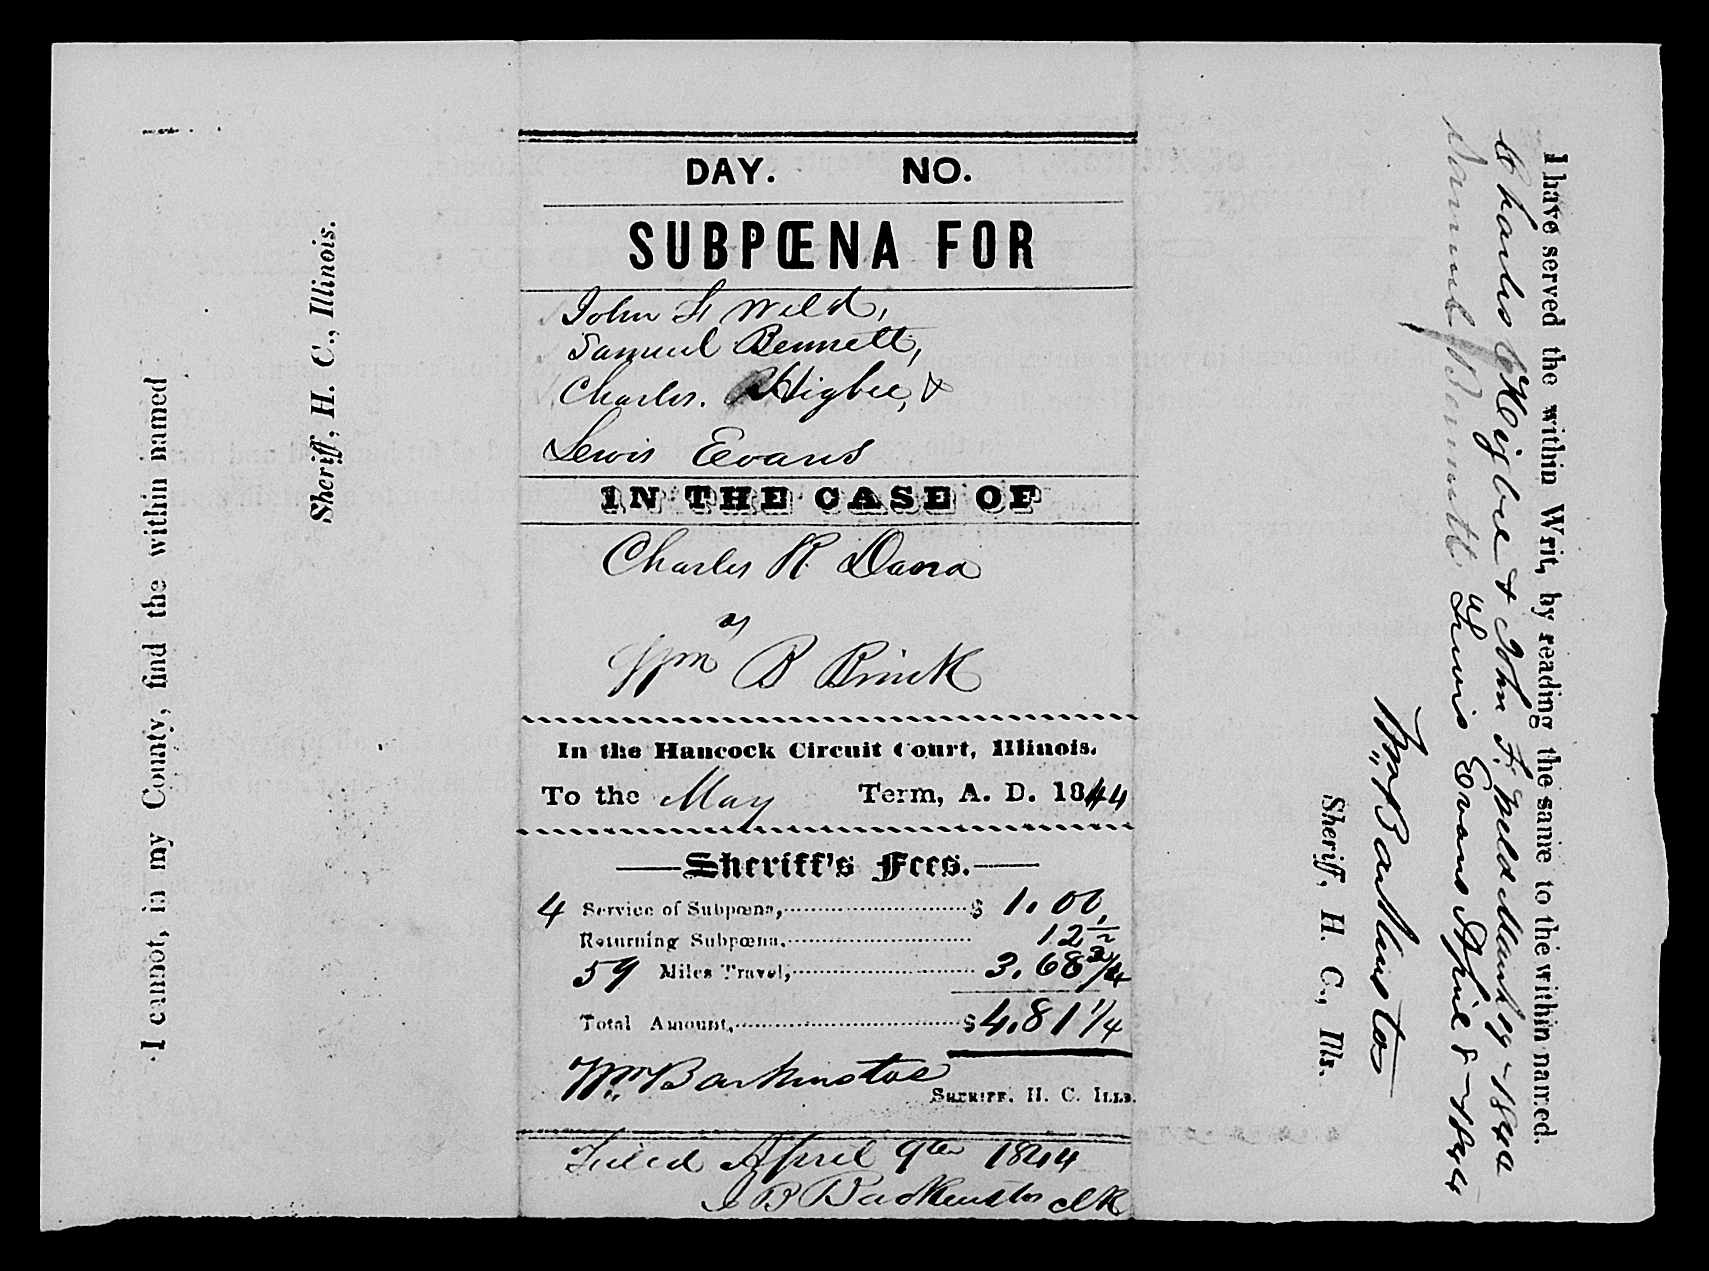 I cannot, in my County, find the within named
Sheriff, H. C., Illinois.
DAY. NO.
SUBPŒNA FOR
John F Weld,
Samuel Bennett,
Charles. Higbee, &
Lewis Evans
IN THE CASE OF
Charles R. Dana
vs
Wm B Brink
In the Hancock Circuit Court, Illinois.
To the May Term, A. D. 1844
Sheriff's Fees.
4 Service of Subpœna, $ 1.00,
Returning Subpœna. 12 1/2
59 Miles Travel, 3.68 3/4
Total Amount, $4.81 1/4
Wm Backenstos
SHERIFF. H. C. ILLS.
Filed April 9th 1844
J B Backenstos clk
I have served the within Writ, by reading the same to the within named.
Charles Higbee & John F. Weld March 29 - 1844
Samuel Bennett " Lewis Evans April 8 - 1844
Wm Backenstos
Sheriff, H. C., Ills.